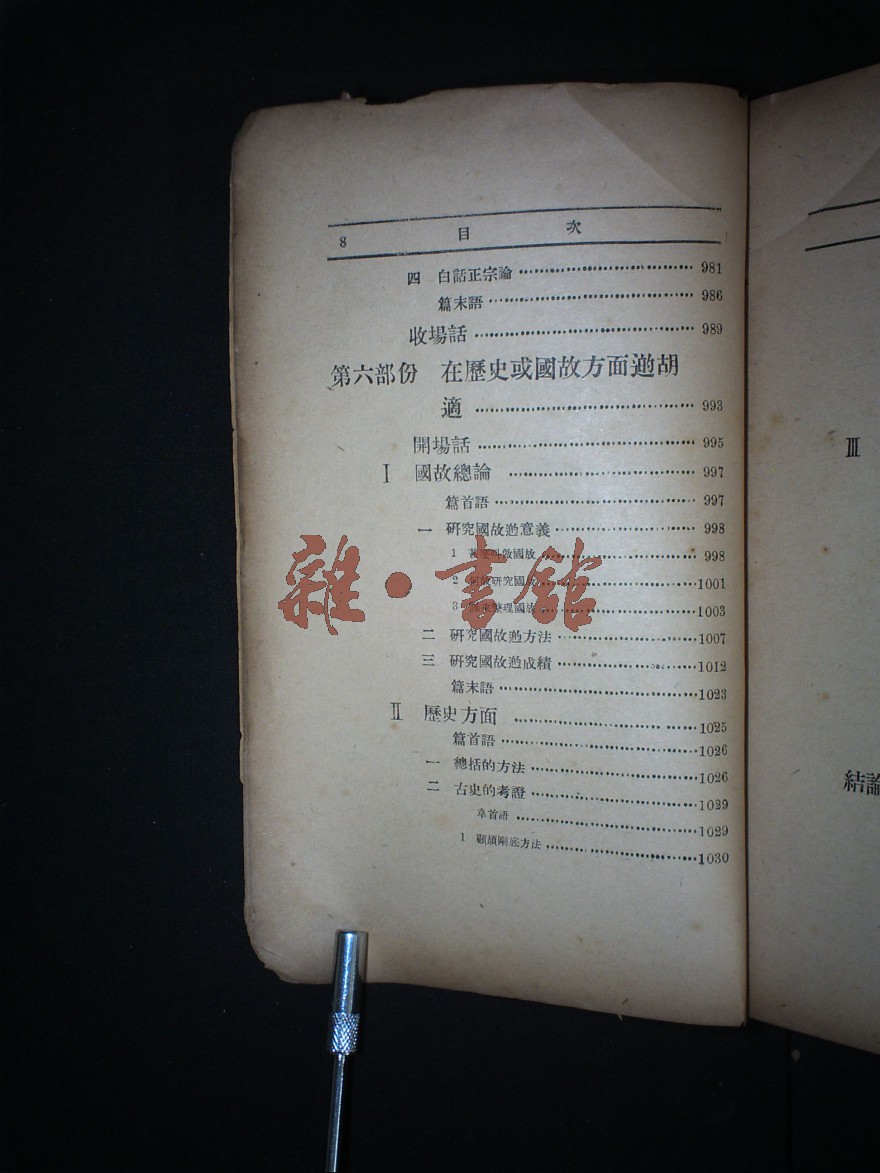 8 目次
四 白話正宗論 981
篇末語 986
收場話 989
第六部份 在歷史或國故方面逎胡
適 993
開場話 995
I 國故總論 997
篇首語 997
一 研究國故逎意義 998
1 甚麼叫做國故 998
2 何故研究國故 1001
3 整理國故 1003
二 研究國故逎方法 1007
三 研究國故逎成績 1012
篇末語 1023
II 歷史方面 1025
篇首語 1026
一 總括的方法 1026
二 古史的考證 1029
章首語 1029
1 顧頡剛底方法 1030
III
結論
雜·書館